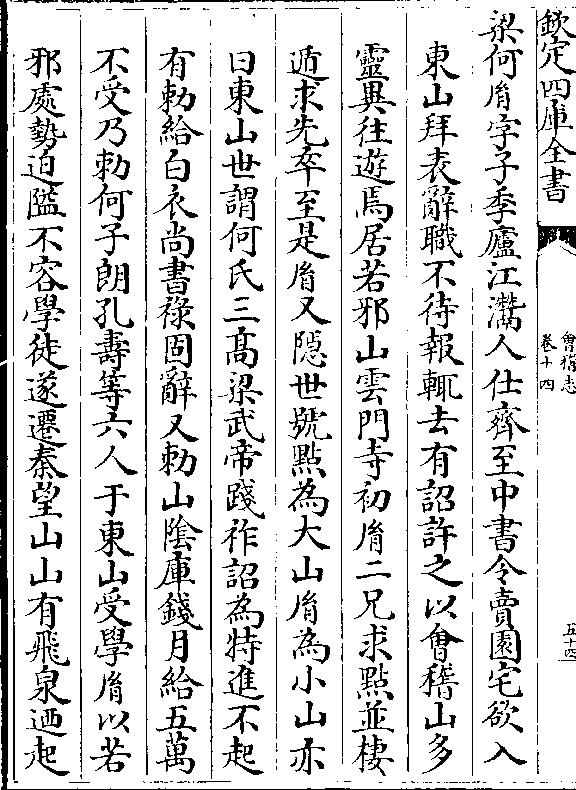 欽定四庫全書
會稽志
卷十四
五十四
梁何𦙍字子季廬江灊人仕齊至中書令賣園宅欲入
東山拜表辭職不待報輒去有詔許之以會稽山多
靈異往遊焉居若邪山雲門寺初𦙍二兄求㸃並棲
遁求先卒至是𦙍又隠世號㸃為大山𦙍為小山亦
曰東山世謂何氏三髙梁武帝踐祚詔為特進不起
有勅給白衣尚書祿固辭又勅山隂庫錢月給五萬
不受乃勅何子朗孔壽等六人于東山受學𦙍以若
邪處勢迫隘不容學徒遂遷秦望山山有飛泉迺起